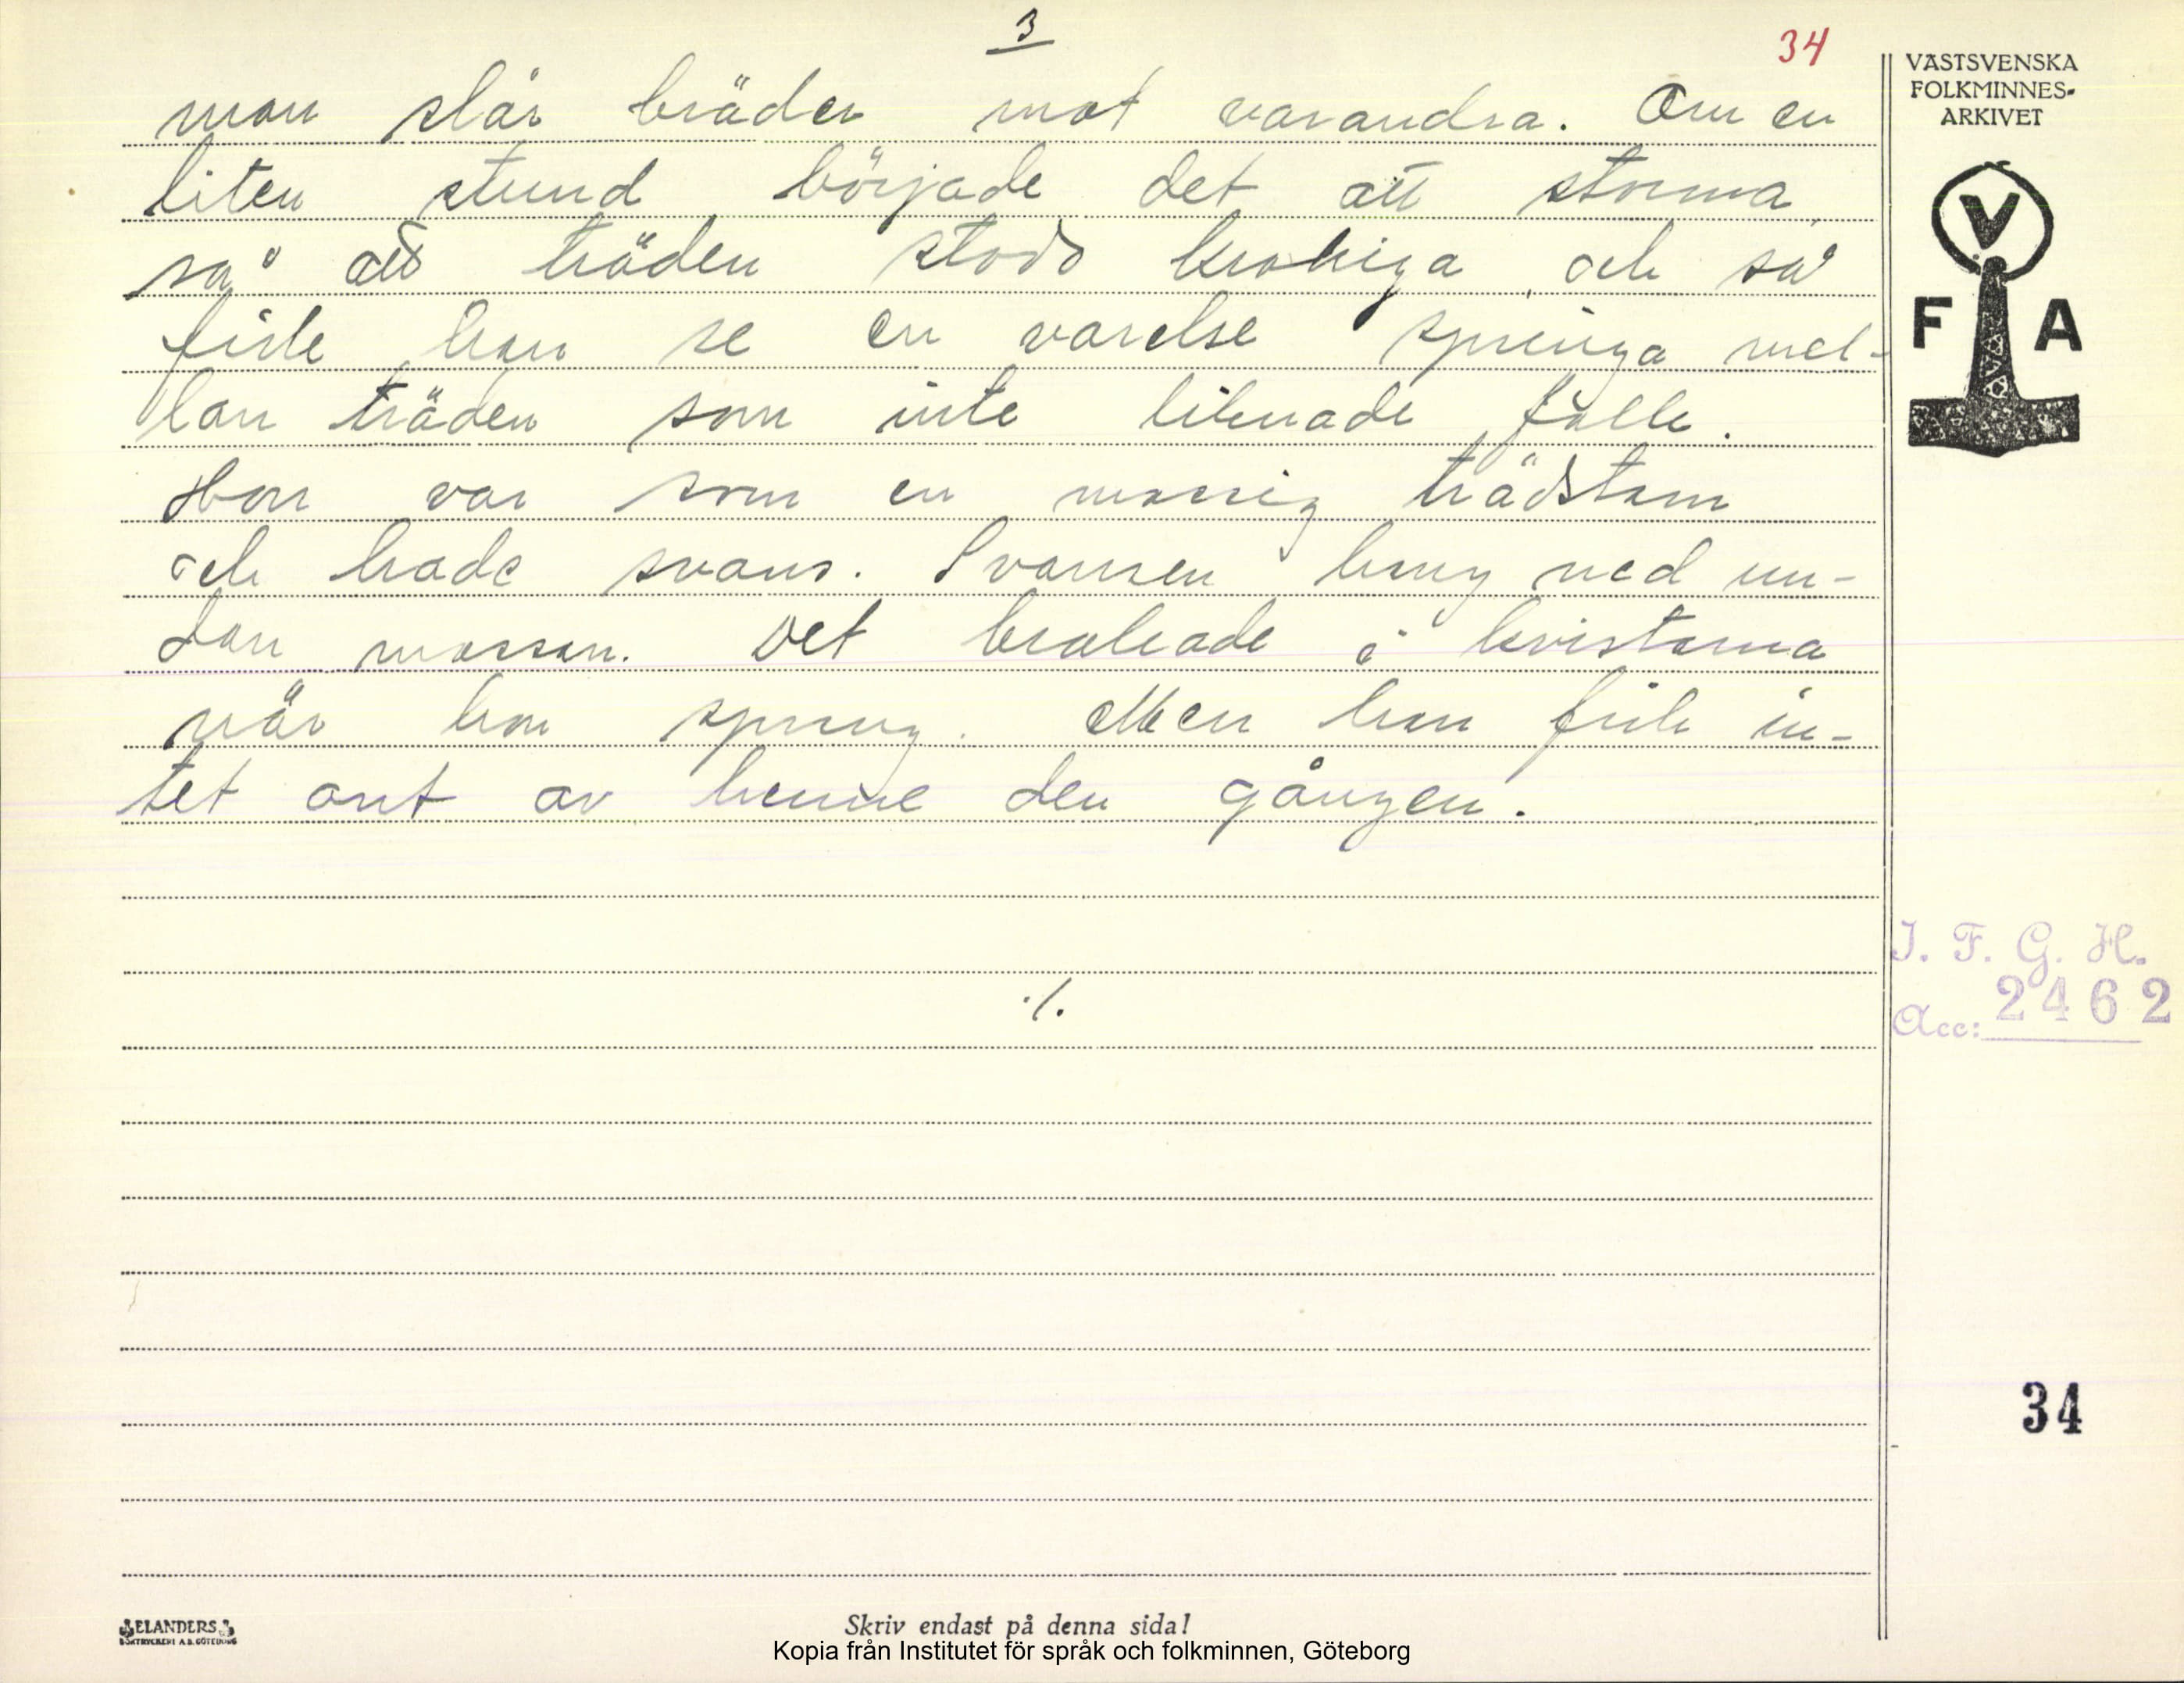 3
34
man slår bräder mot varandra. Om en
liten stund började det att storma,
så att träden stodo krokiga, och så
fick han se en varelse springa mel-
lan träden som inte liknade folk.
Hon var som en mossig trädstam
och hade svans. Svansen hang ned un-
dan mossan. Det brakade i kvistarna
när hon sprang. Men han fick in-
tet ont av henne den gången.
./.
VÄSTSVENSKA
FOLKMINNES-
ARKIVET
V
F A
I. F. G. H.
Acc: 2462
34
ELANDERS
BOKTRYCKERI A.B. GÖTEBORG
Skriv endast på denna sida!
Kopia från Institutet för språk och folkminnen, Göteborg